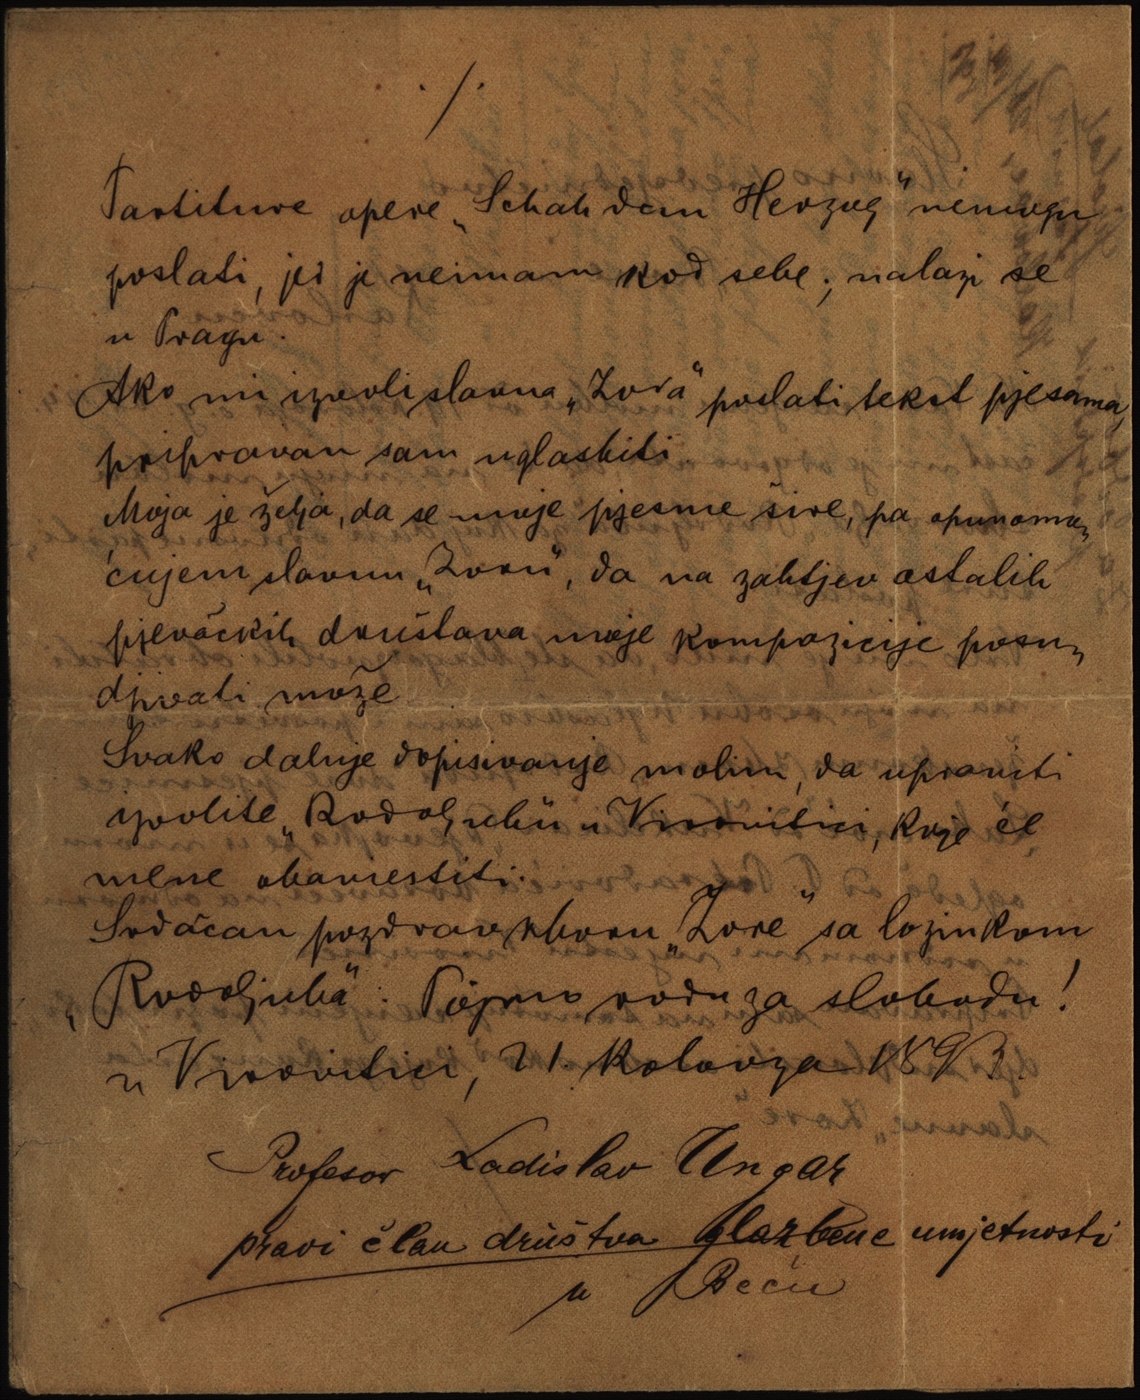 ./.
Partiture opere „Schah dem Herzog" nemogu
poslati, jer je neimam kod sebe; nalazi se
u Pragu.
Ako mi izvoli slavna „Zora" poslati tekst pjesama,
pripravan sam uglasbiti.
Moja je želja, da se moje pjesme šire, pa opunomo„
ćujem slavnu „Zoru", da na zahtjev ostalih
pjevačkih društava moje kompozicije posu„
djivati može
Svako daljnje dopisivanje molim, da upraviti
izvolite „Rodoljubu" u Virovitici, koje će
mene obavjestiti.
Srdačan pozdrav zboru „Zore" sa lozinkom
„Rodoljuba": Pjesmo rodu za slobodu!
u Virovitici, 21. Kolovoza 1893.
Profesor Ladislav Ungar
pravi član društva glazbene umjetnosti
u Beču